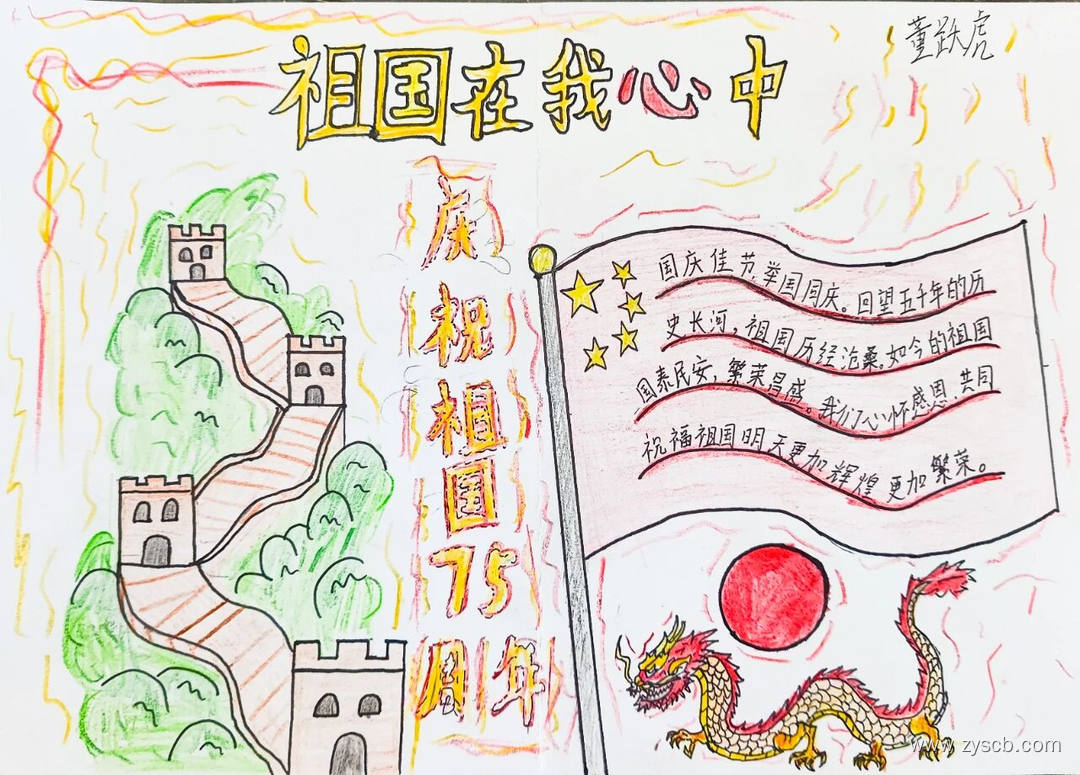 祖国在我心中
董跃虎
庆祝祖国75周年
国庆佳节,举国同庆。回望五千年的历
史长河,祖国历经沧桑,如今的祖国
国泰民安,繁荣昌盛。我们心怀感恩,共同
祝福祖国明天更加辉煌更加繁荣。
www.zyscb.com